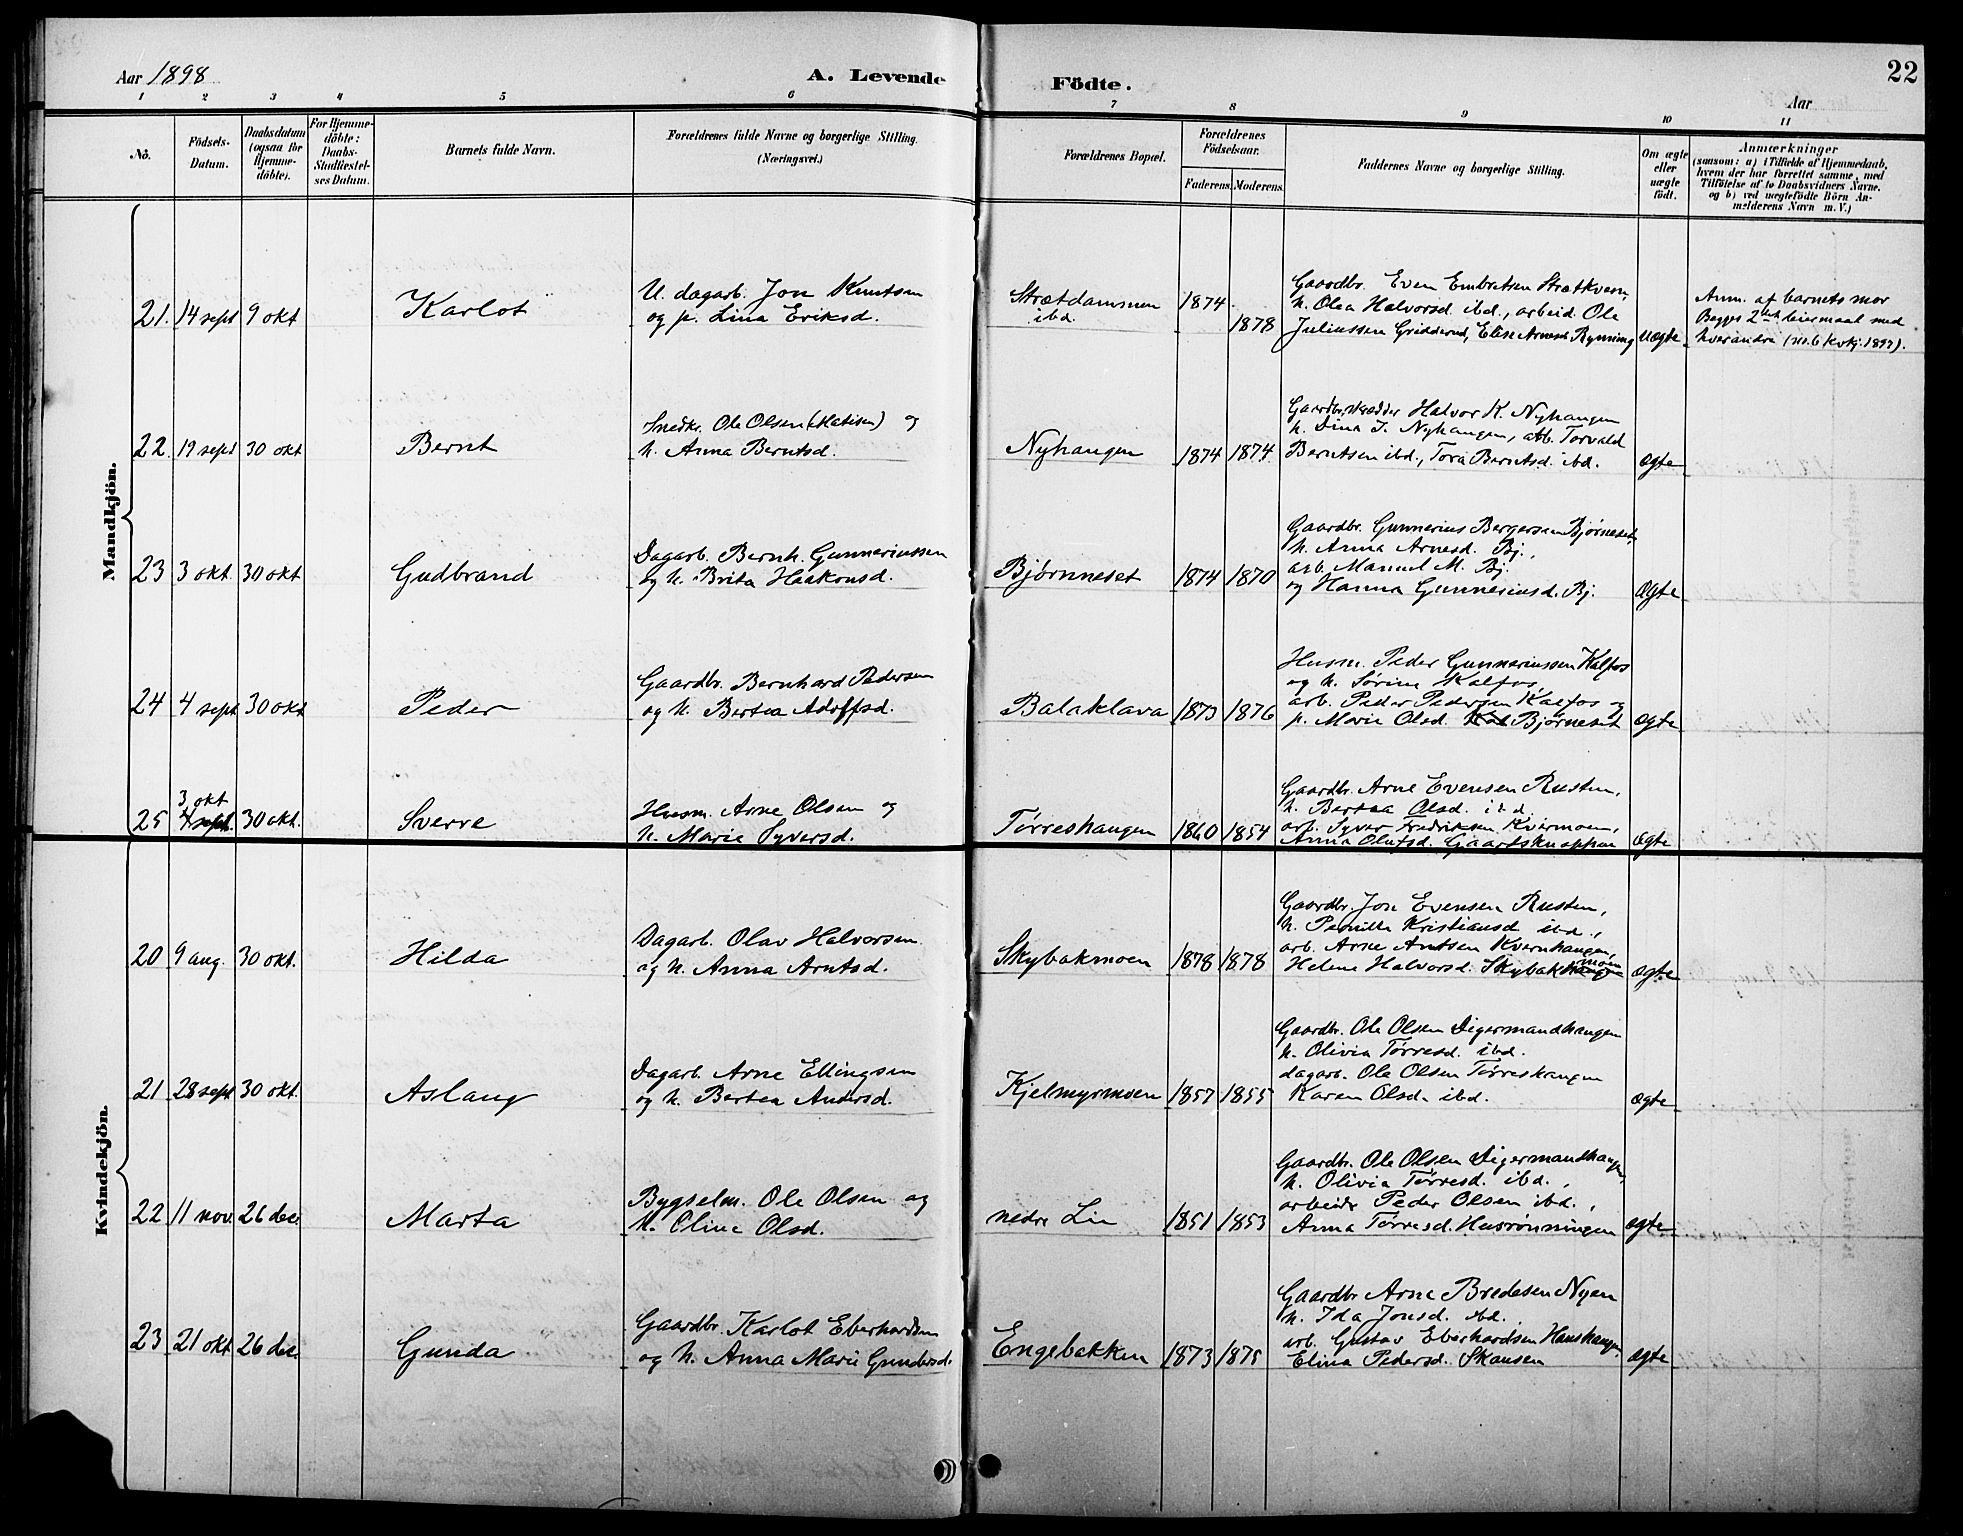 Aar 1898
A. Levende Födte.
22
Aar
1 2 3 4 5 6 7 8 9 10 11
No.
Födsels-
Datum.
Daabsdatum
(ogsaa for
Hjemme-
döbte).
For Hjemme-
döbte:
Daabs-
Stadfæstel-
ses Datum.
Barnets fulde Navn.
Forældrenes fulde Navne og borgerlige Stilling.
(Næringsvei.)
Forældrenes Bopæl.
Forældrenes
Födselsaar.
Faderens.
Moderens.
Faddernes Navne og borgerlige Stilling.
Om ægte
eller
uægte
født.
Anmærkninger
(saasom: a) i Tilfælde af Hjemmedaab,
hvem der har forrettet samme, med
Tilföielse af to Daabsvidners Navne.
og b) ved uægtefödte Börn An-
melderens Navn m. V.)
Mandkjön.
21. 14 sept 9 okt
Karlot
U. dagarb. Jon Knutsen
og p. Lina Eriksd.
Strætdammen
ibd.
1874
1878
Gaardbr. Even Embretsen Strætkvern,
h. Olea Halvorsd. ibd., arbeid. Ole
Juliussen Gridderud, Elise Arnesd. Rynning
uægte
Anm. af barnets mor
Begges 2det leiermaal med
hverandre (no. 6 kvkj. 1897).
22. 19 sept 30 okt
Bernt
Snedkr. Ole Olsen (Matisen) og
h. Anna Berntsd.
Nyhaugen
1874 1874
Gaardbr. skrædder Halvor K. Nyhaugen
h. Dina J. Nyhaugen, arb. Torvald
Berntsen ibd., Tora Berntsd. ibd.
ægte
23 3 okt 30 okt
Gudbrand
Dagarb. Bernh. Gunneriussen
og h. Brita Haakonsd.
Bjørnneset
1874 1870
Gaardbr. Gunnerius Bergersen Bjørneset,
h. Anna Arnesd. Bj.,
arb. Manuel M. Bj.
og Hanna Gunneriusd. Bj.
ægte
24 4 sept 30 okt
Peder
Gaardbr. Bernhard Pedersen
og h. Bertea Adolfsd.
Balaklava
1873 1876
Husm. Peder Gunneriussen Kalfos
og h. Sørine Kalfos,
arb. Peder Pedersen Kalfos og
p. Marie Olsd. Kal Bjørneset
ægte
25 3. okt
4 sept. 30 okt.
Sverre
Husm. Arne Olsen og
h. Marie Syversd.
Tørreshaugen
1860 1854
Gaardbr. Arne Evensen Rusten,
h. Bertea Olsd. ibd
arb. Syver Fredriksen Kvermoen,
Anna Olufsd. Gaardsknappen
ægte
Kvindekjön.
20 9 aug. 30 okt.
Hilda
Dagarb. Olav Halvorsen
og h. Anna Arntsd.
Skybakmoen
1878 1878
Gaardbr. Jon Evensen Rusten,
h. Pernille Kristiansd ibd.,
arb. Arne Antsen Kvernhaugen,
Helene Halvorsd. Skybakmoen
ægte
21 28 sept 30 okt.
Aslaug
Dagarb. Arne Ellingsen
og h. Bertea Andersd.
Kjelmyrmoen
1857 1855
Gaardbr. Ole Olsen Digermandhaugen
h. Olivia Tørresd. ibd.
dagarb. Ole Olsen Tørreshaugen
Karen Olsd. ibd.
ægte
22 11 nov. 26 dec
Marta
Bygselm. Ole Olsen og
h. Oline Olsd.
nedre Lie
1851 1853
Gaardbr. Ole Olsen Digermandhaugen,
h. Olivia Tørresd. ibd.,
arbeidr Peder Olsen ibd.,
Anna Tørresd. Husrønningen
ægte
23 21 okt 26 dec
Gunda
Gaardbr. Karlot Eberhardsen
og h. Anna Marie Gundersd.
Engebakken
1873 1875
Gaardbr Arne Bredesen Nyen
h. Ida Jonsd. ibd.
arb. Gustav Eberhardsen Hanshaugen,
Elina Pedersd. Skansen
ægte